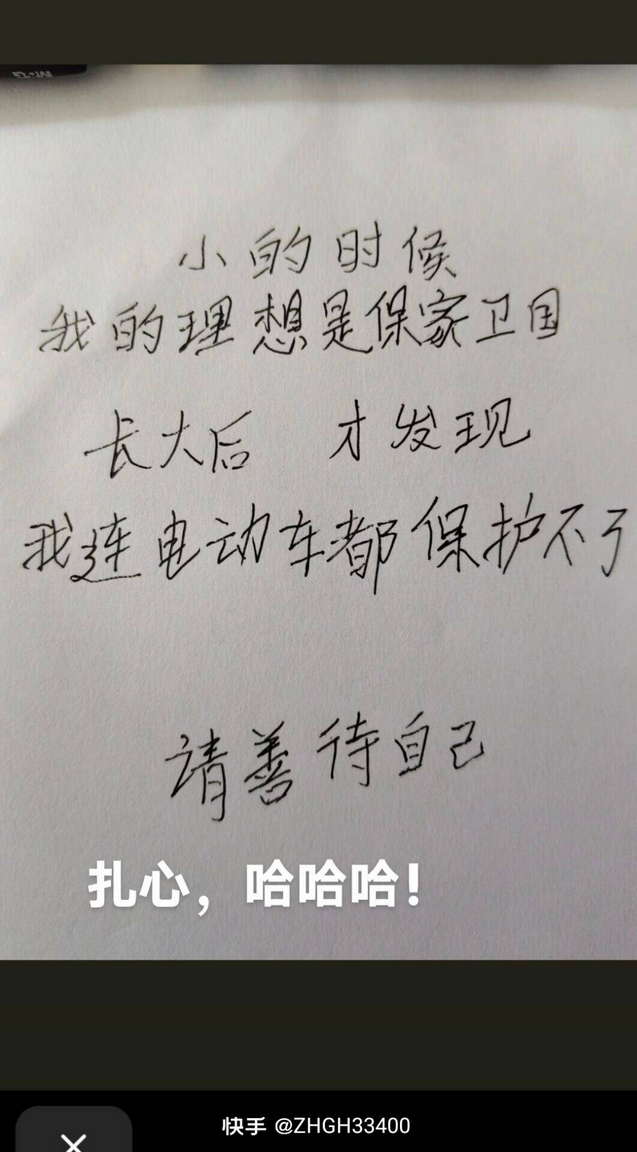 小的时候
我的理想是保家卫国
长大后 才发现
我连电动车都保护不了
请善待自己
扎心，哈哈哈！
快手 @ZHGH33400